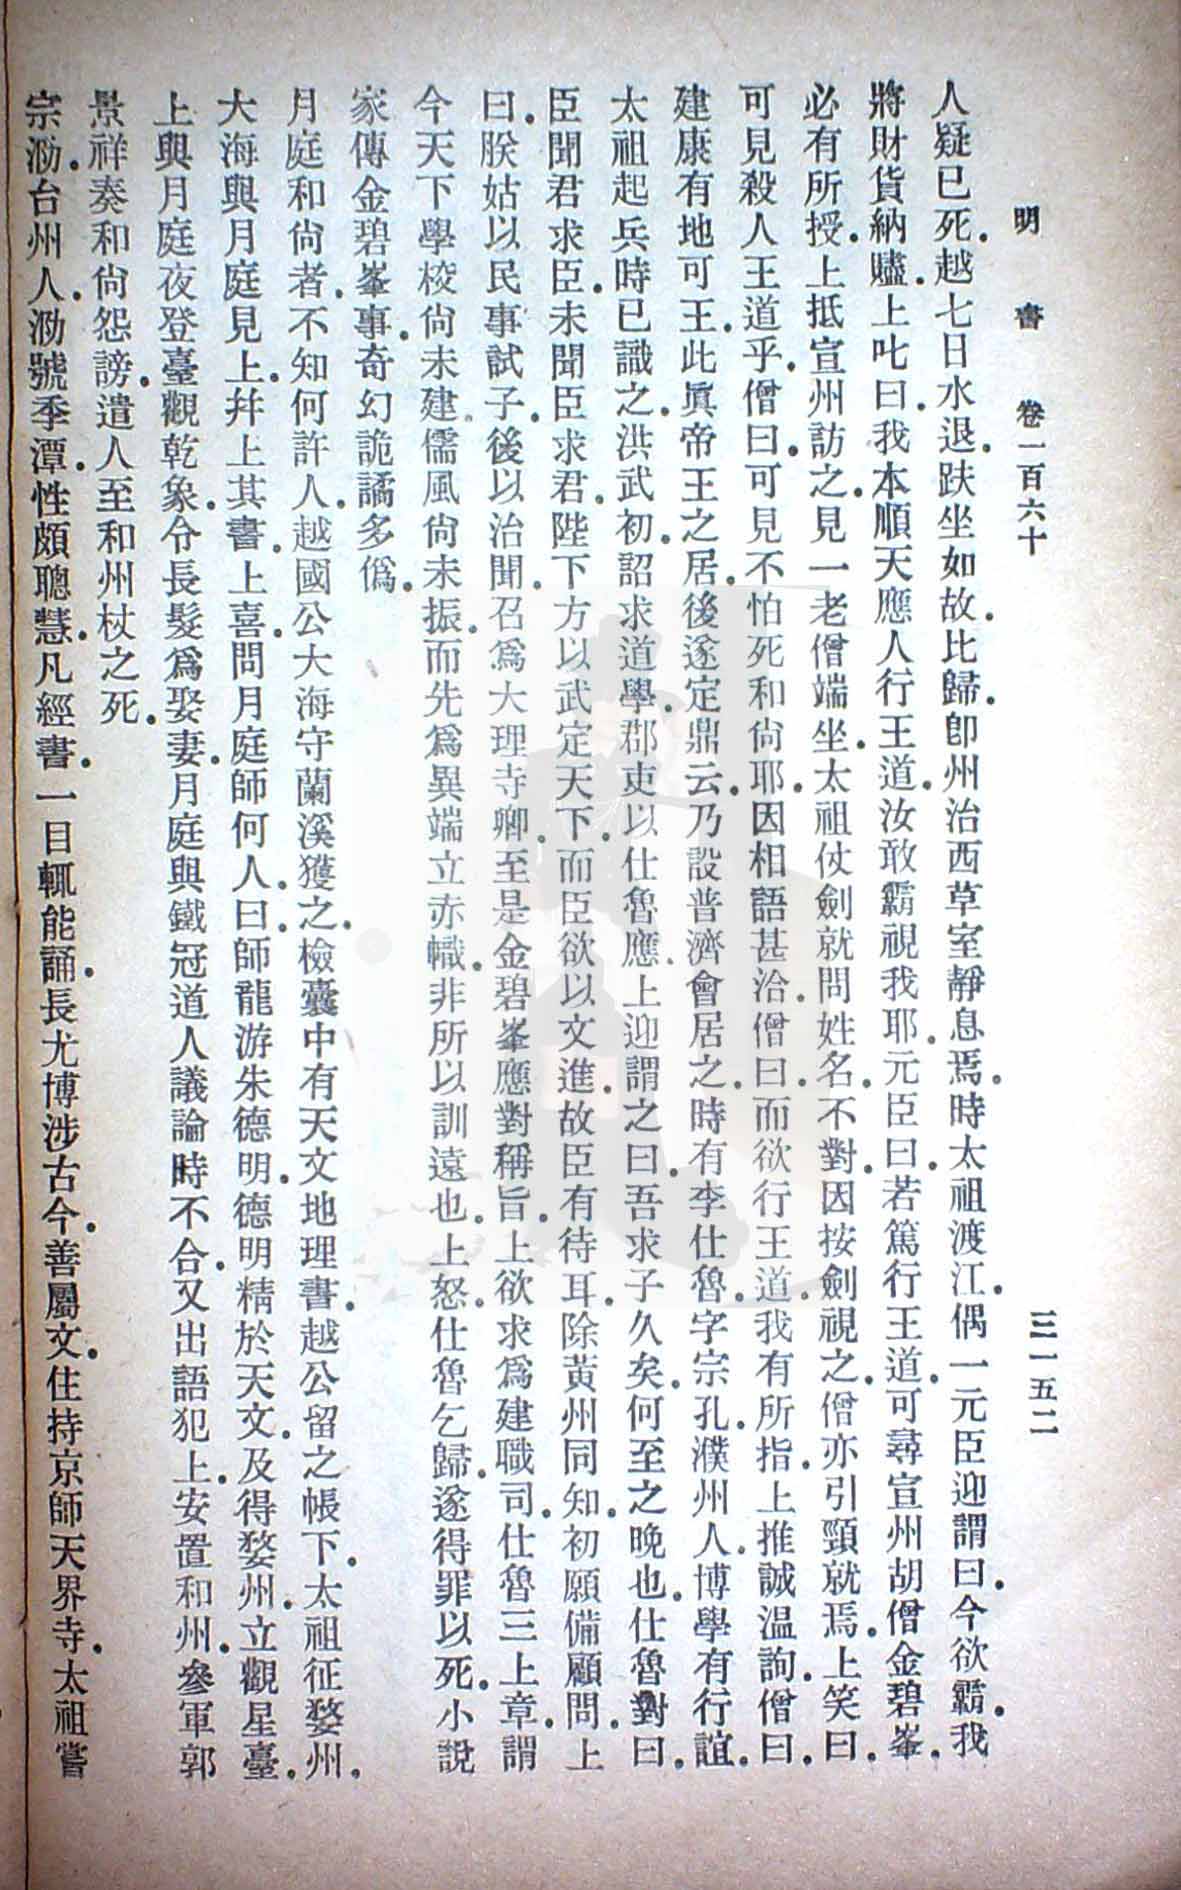 明書 卷一百六十 三一五二
人疑已死。越七日水退。趺坐如故。比歸。卽州治西草室靜息焉。時太祖渡江。偶一元臣迎謂曰。今欲霸。我
將財貨納贐。上叱曰。我本順天應人行王道。汝敢霸視我耶。元臣曰。若篤行王道。可尋宣州胡僧金碧峯。
必有所授。上抵宣州訪之。見一老僧端坐。太祖仗劍就問姓名。不對。因按劍視之。僧亦引頸就焉。上笑曰。
可見殺人王道乎。僧曰。可見不怕死和尙耶。因相語甚洽。僧曰。而欲行王道。我有所指。上推誠温詢。僧曰。
建康有地可王。此眞帝王之居。後遂定鼎云。乃設普濟會居之。時有李仕魯。字宗孔。濮州人。博學有行誼。
太祖起兵時已識之。洪武初。詔求道學。郡吏以仕魯應。上迎謂之曰。吾求子久矣。何至之晚也。仕魯對曰。
臣聞君求臣。未聞臣求君。陛下方以武定天下。而臣欲以文進。故臣有待耳。除黃州同知。初願備顧問。上
曰。朕姑以民事試子。後以治聞。召爲大理寺卿。至是金碧峯應對稱旨。上欲求爲建職司。仕魯三上章。謂
今天下學校尙未建。儒風尙未振。而先爲異端立赤幟。非所以訓遠也。上怒。仕魯乞歸。遂得罪以死。小說
家傳金碧峯事。奇幻詭譎多僞。
月庭和尙者。不知何許人。越國公大海守蘭溪獲之。檢囊中有天文地理書。越公留之帳下。太祖征婺州。
大海與月庭見上。幷上其書。上喜。問月庭師何人。曰。師龍游朱德明。德明精於天文。及得婺州。立觀星臺。
上與月庭夜登臺觀乾象。令長髮爲娶妻。月庭與鐵冠道人議論時不合。又出語犯上。安置和州。參軍郭
景祥奏和尙怨謗。遣人至和州杖之死。
宗泐。台州人。泐號季潭。性頗聰慧。凡經書。一目輒能誦。長尤博涉古今。善屬文。住持京師天界寺。太祖嘗